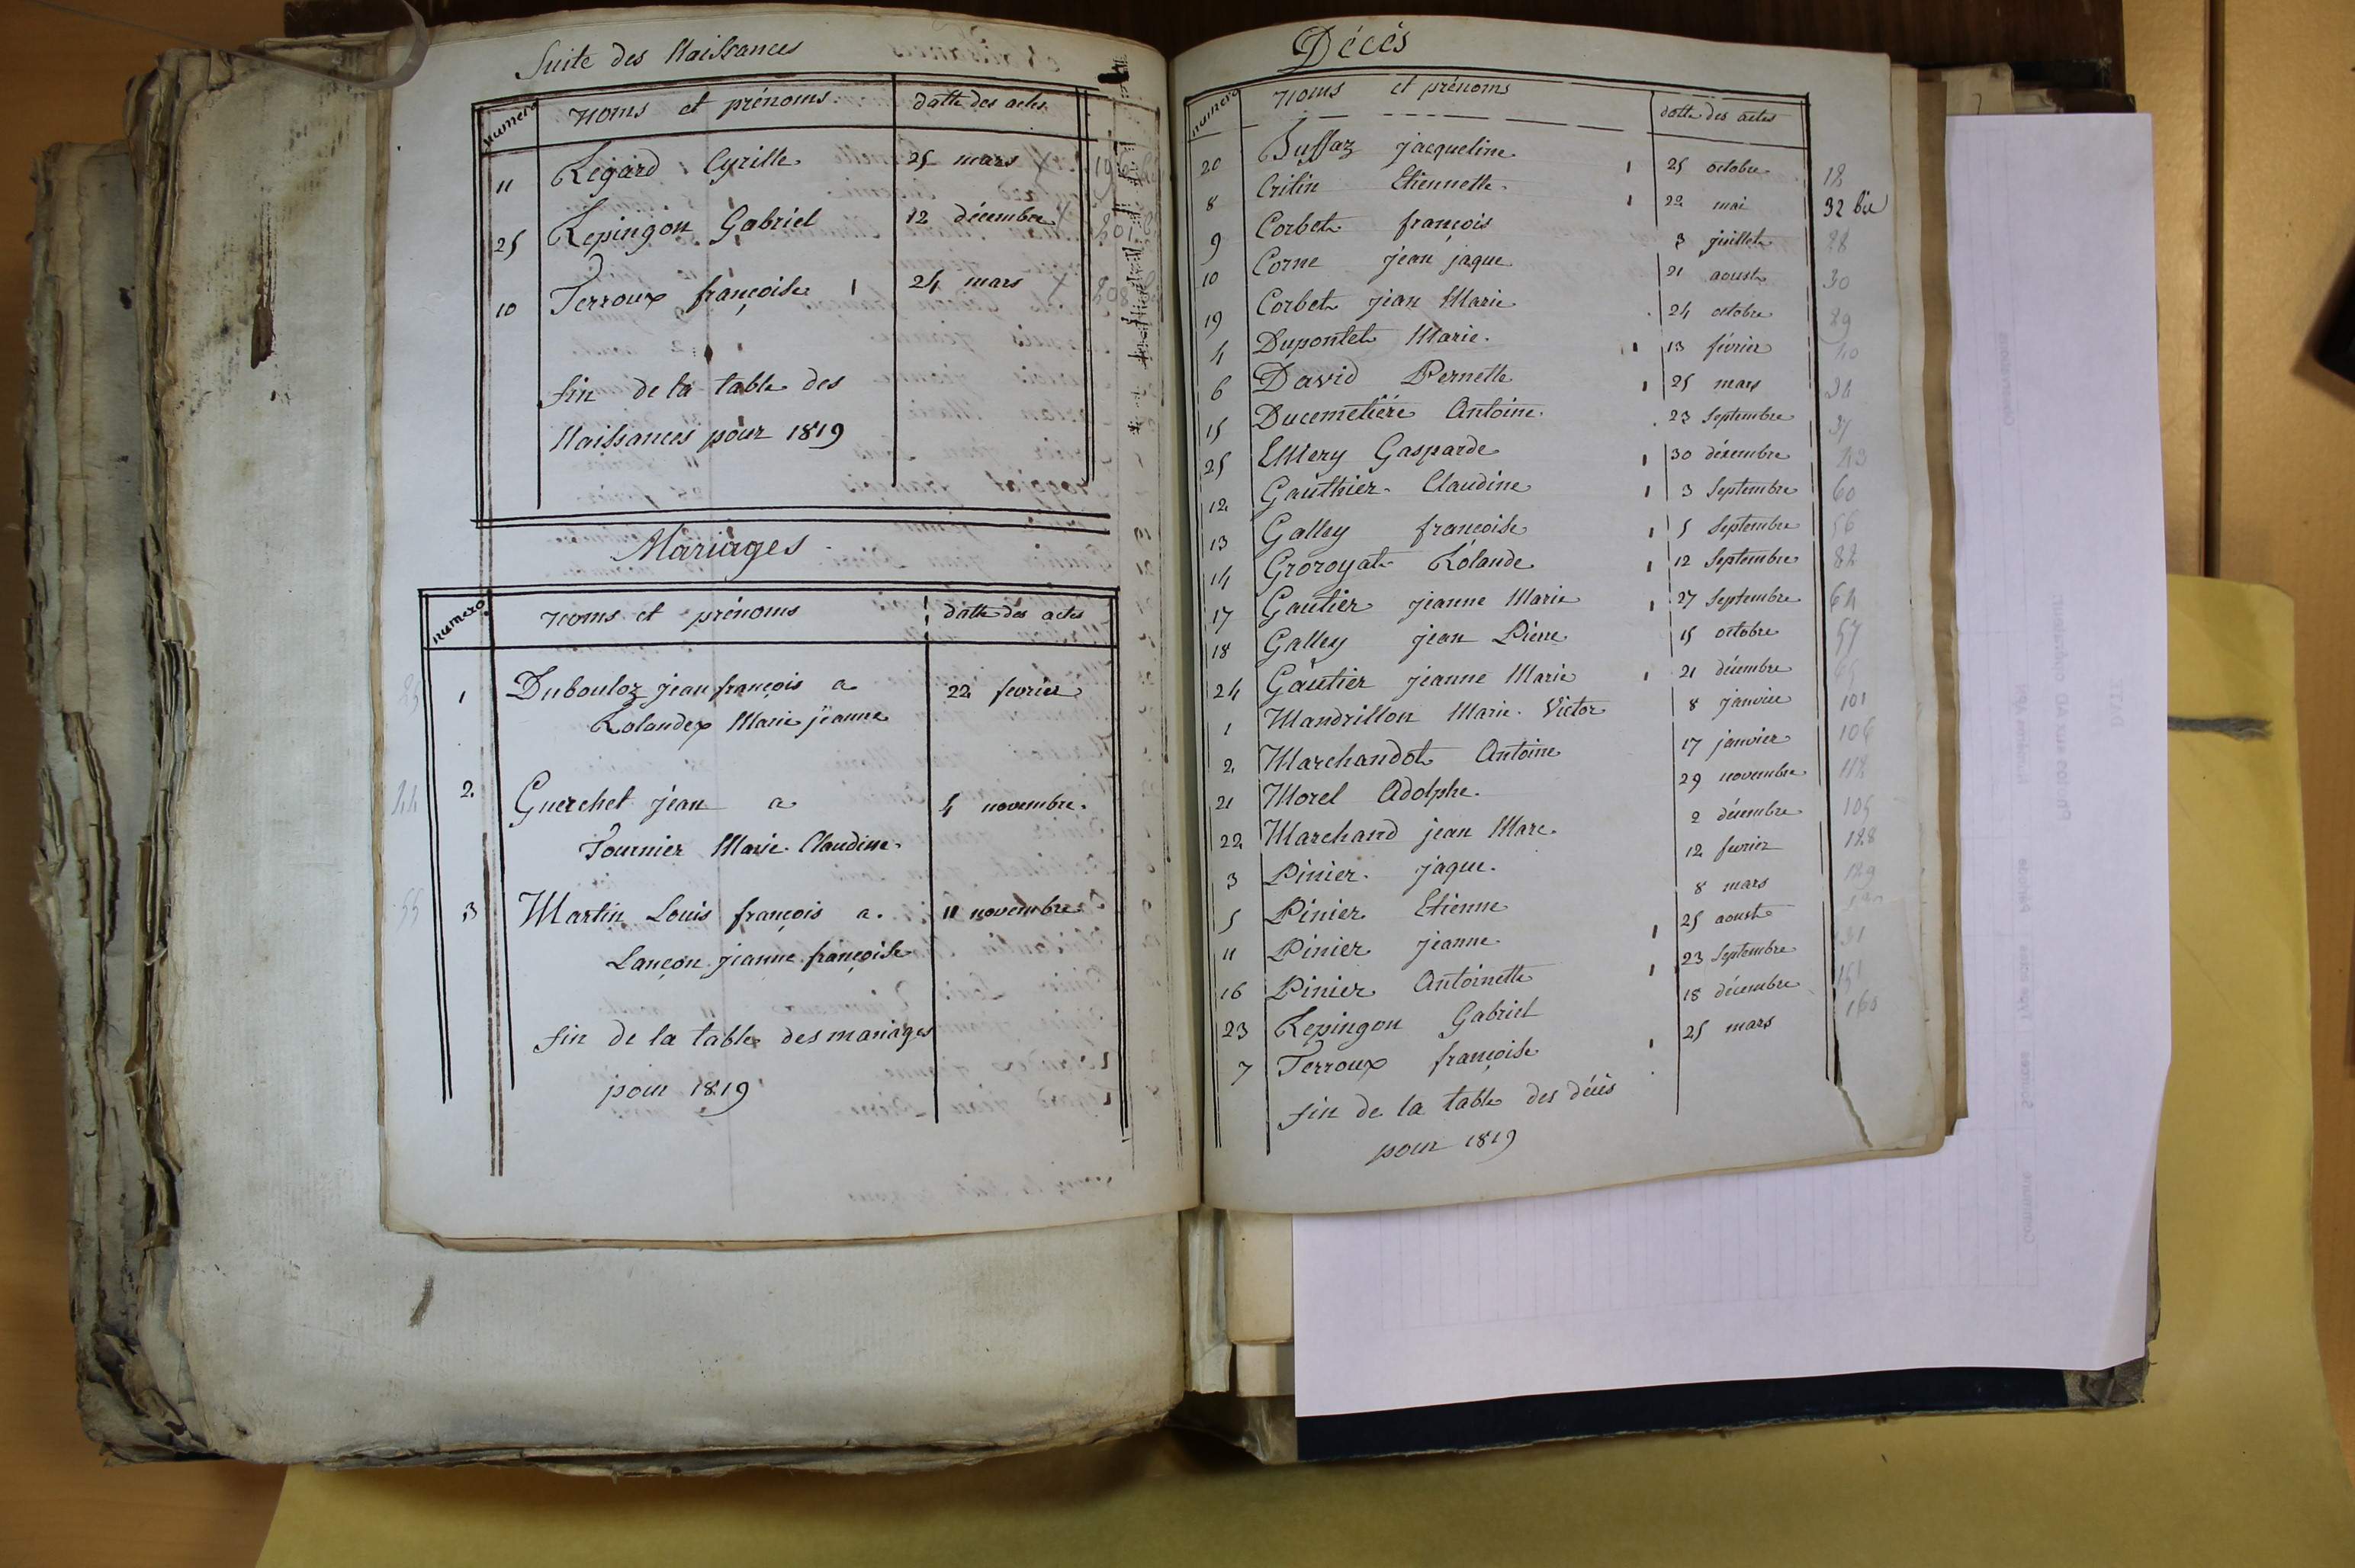 Suite des Naissances
numero noms et prénoms datte des actes
11 Regard Cyrille 25 mars
25 Repingon Gabriel 12 décembre
10 Terroux françoise 24 mars
fin de la table des
Naissances pour 1819
Mariages
numero noms et prénoms datte des actes
1 Dubouloz jean françois a 22 fevrier
Rolandex Marie jeanne
44 2 Guerchet jean a 4 novembre
Fournier Marie Claudine
55 3 Martin Louis françois a 11 novembre
Lançon jeanne françoise
fin de la table des mariages
pour 1819
Décès
numero noms et prénoms datte des actes
20 Buffaz jacqueline 25 octobre 12
8 Critin Etiennette 22 mai 32 bis
9 Corbet françois 3 juillet 28
10 Corne jean jaque 21 aoust 30
19 Corbet jean Marie 24 octobre 29
4 Dupontet Marie 13 février 40
6 David Pernette 25 mars 34
15 Ducemetière Antoine 23 Septembre 37
25 EMery Gasparde 30 décembre 43
12 Gauthier Claudine 3 Septembre 60
13 Galley francoise 5 Septembre 56
14 Groroyat Rolande 12 Septembre 82
17 Gautier jeanne Marie 27 Septembre 64
18 Galley jean Pierre 15 octobre 57
24 Gautier jeanne Marie 21 décembre 65
1 Mandrillon Marie Victor 8 janvier 101
2 Marchandot Antoine 17 janvier 106
21 Morel Adolphe 29 novembre 112
22 Marchand jean Marc 2 décembre 105
3 Pinier jaque 12 fevrier 128
5 Pinier Etienne 8 mars 129
11 Pinier jeanne 25 aoust
16 Pinier Antoinette 23 Septembre 131
23 Repingon Gabriel 18 décembre 151
7 Terroux françoise 25 mars 160
fin de la table des décès
pour 1819